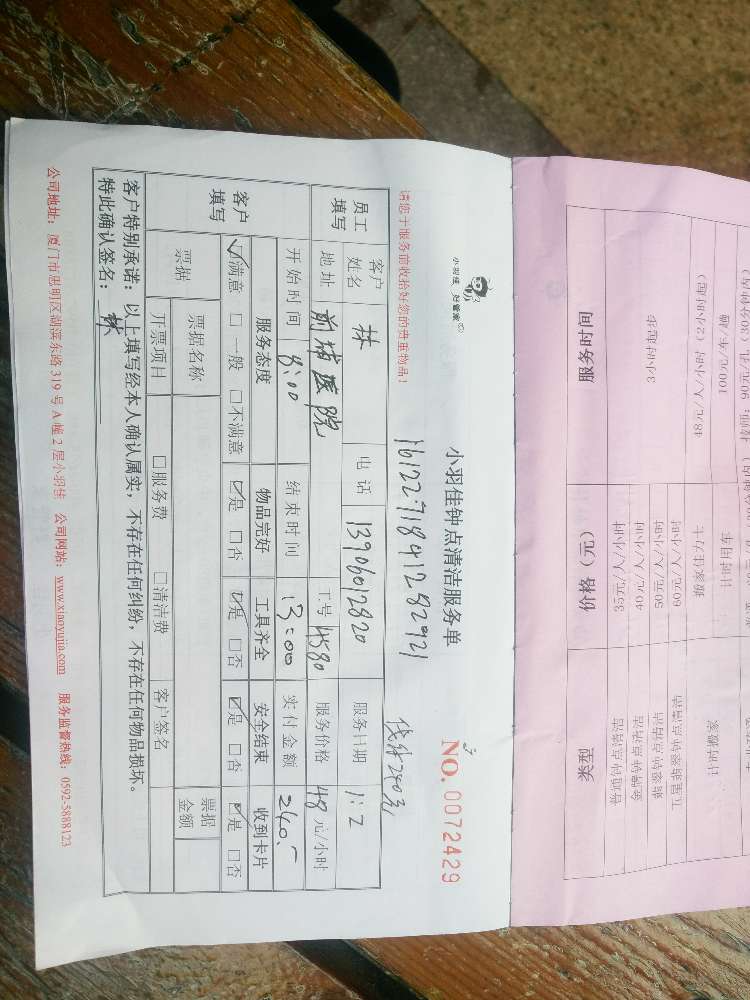 小羽佳 好管家
小羽佳钟点清洁服务单
NO. 0072429
请您于服务前收拾好您的贵重物品!
1612271841282921
钱针240元
员工填写
客户姓名 林 电话 13906012820 服务日期 1:2
地址 前埔医院 工号 4580 服务价格 48元/小时
开始时间 8:00 结束时间 13:00 实付金额 240.-
客户填写
服务态度 物品完好 工具齐全 安全结束 收到卡片
☑满意 □一般 □不满意 ☑是 □否 ☑是 □否 ☑是 □否 ☑是 □否
票据 票据名称 票据金额
开票项目 □服务费 □清洁费 客户签名
客户特别承诺:以上填写经本人确认属实,不存在任何纠纷,不存在任何物品损坏。
特此确认签名: 林
公司地址: 厦门市思明区湖滨东路319号A幢2层小羽佳 公司网站: www.xiaoyujia.com 服务监督热线: 0592-5888123
类型 价格(元) 服务时间
35元/人/小时
40元/人/小时
50元/人/小时
60元/人/小时
3小时起步